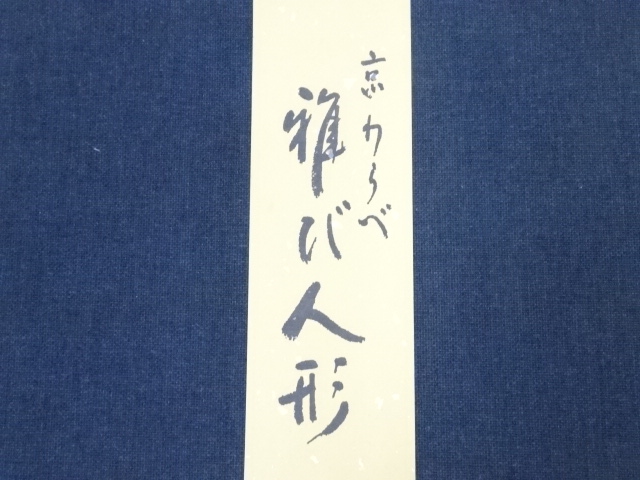 京わらべ
雅び人形